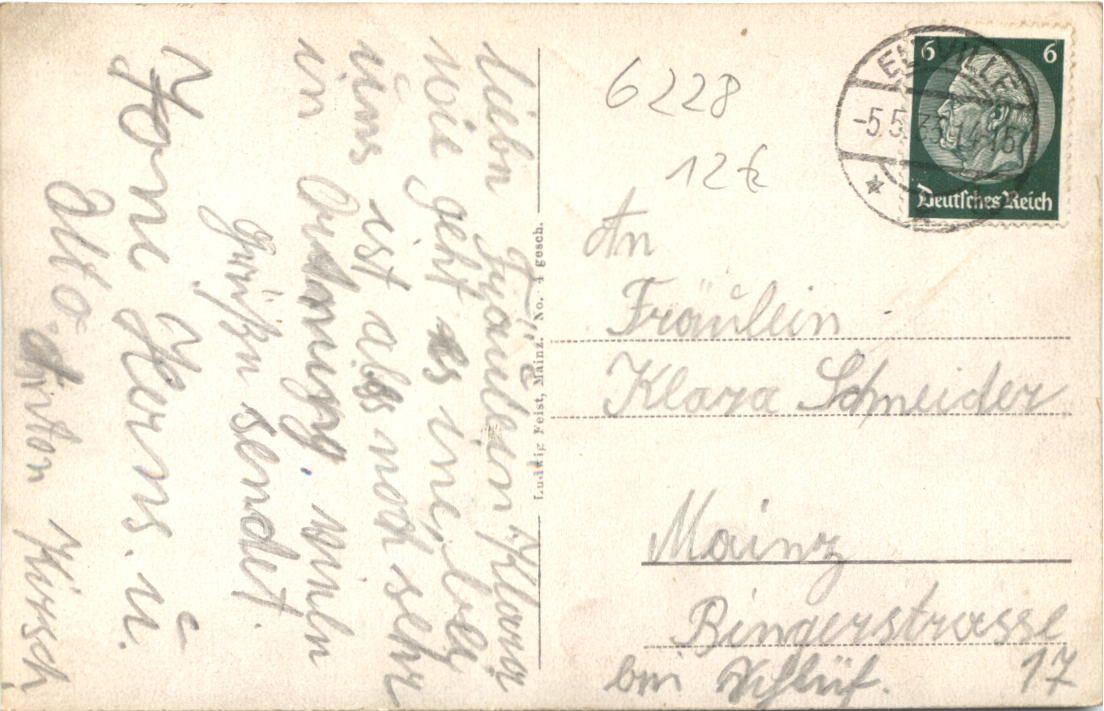 Liebn Fräulein Klara
wie geht es ine, bei
üns ist abs noch sehr
in Ordnung. vieln
grüßn sendet.
Horns. ü
Otto. Anton Kirsch
Ludwig Feist, Mainz. No. 4 gesch.
6228
12€
ELTVILLE
-5.5.33.14-15
6 6
Deutsches Reich
An
Fräulein
Klara Schneider
Mainz
Bingerstrasse
bei 17